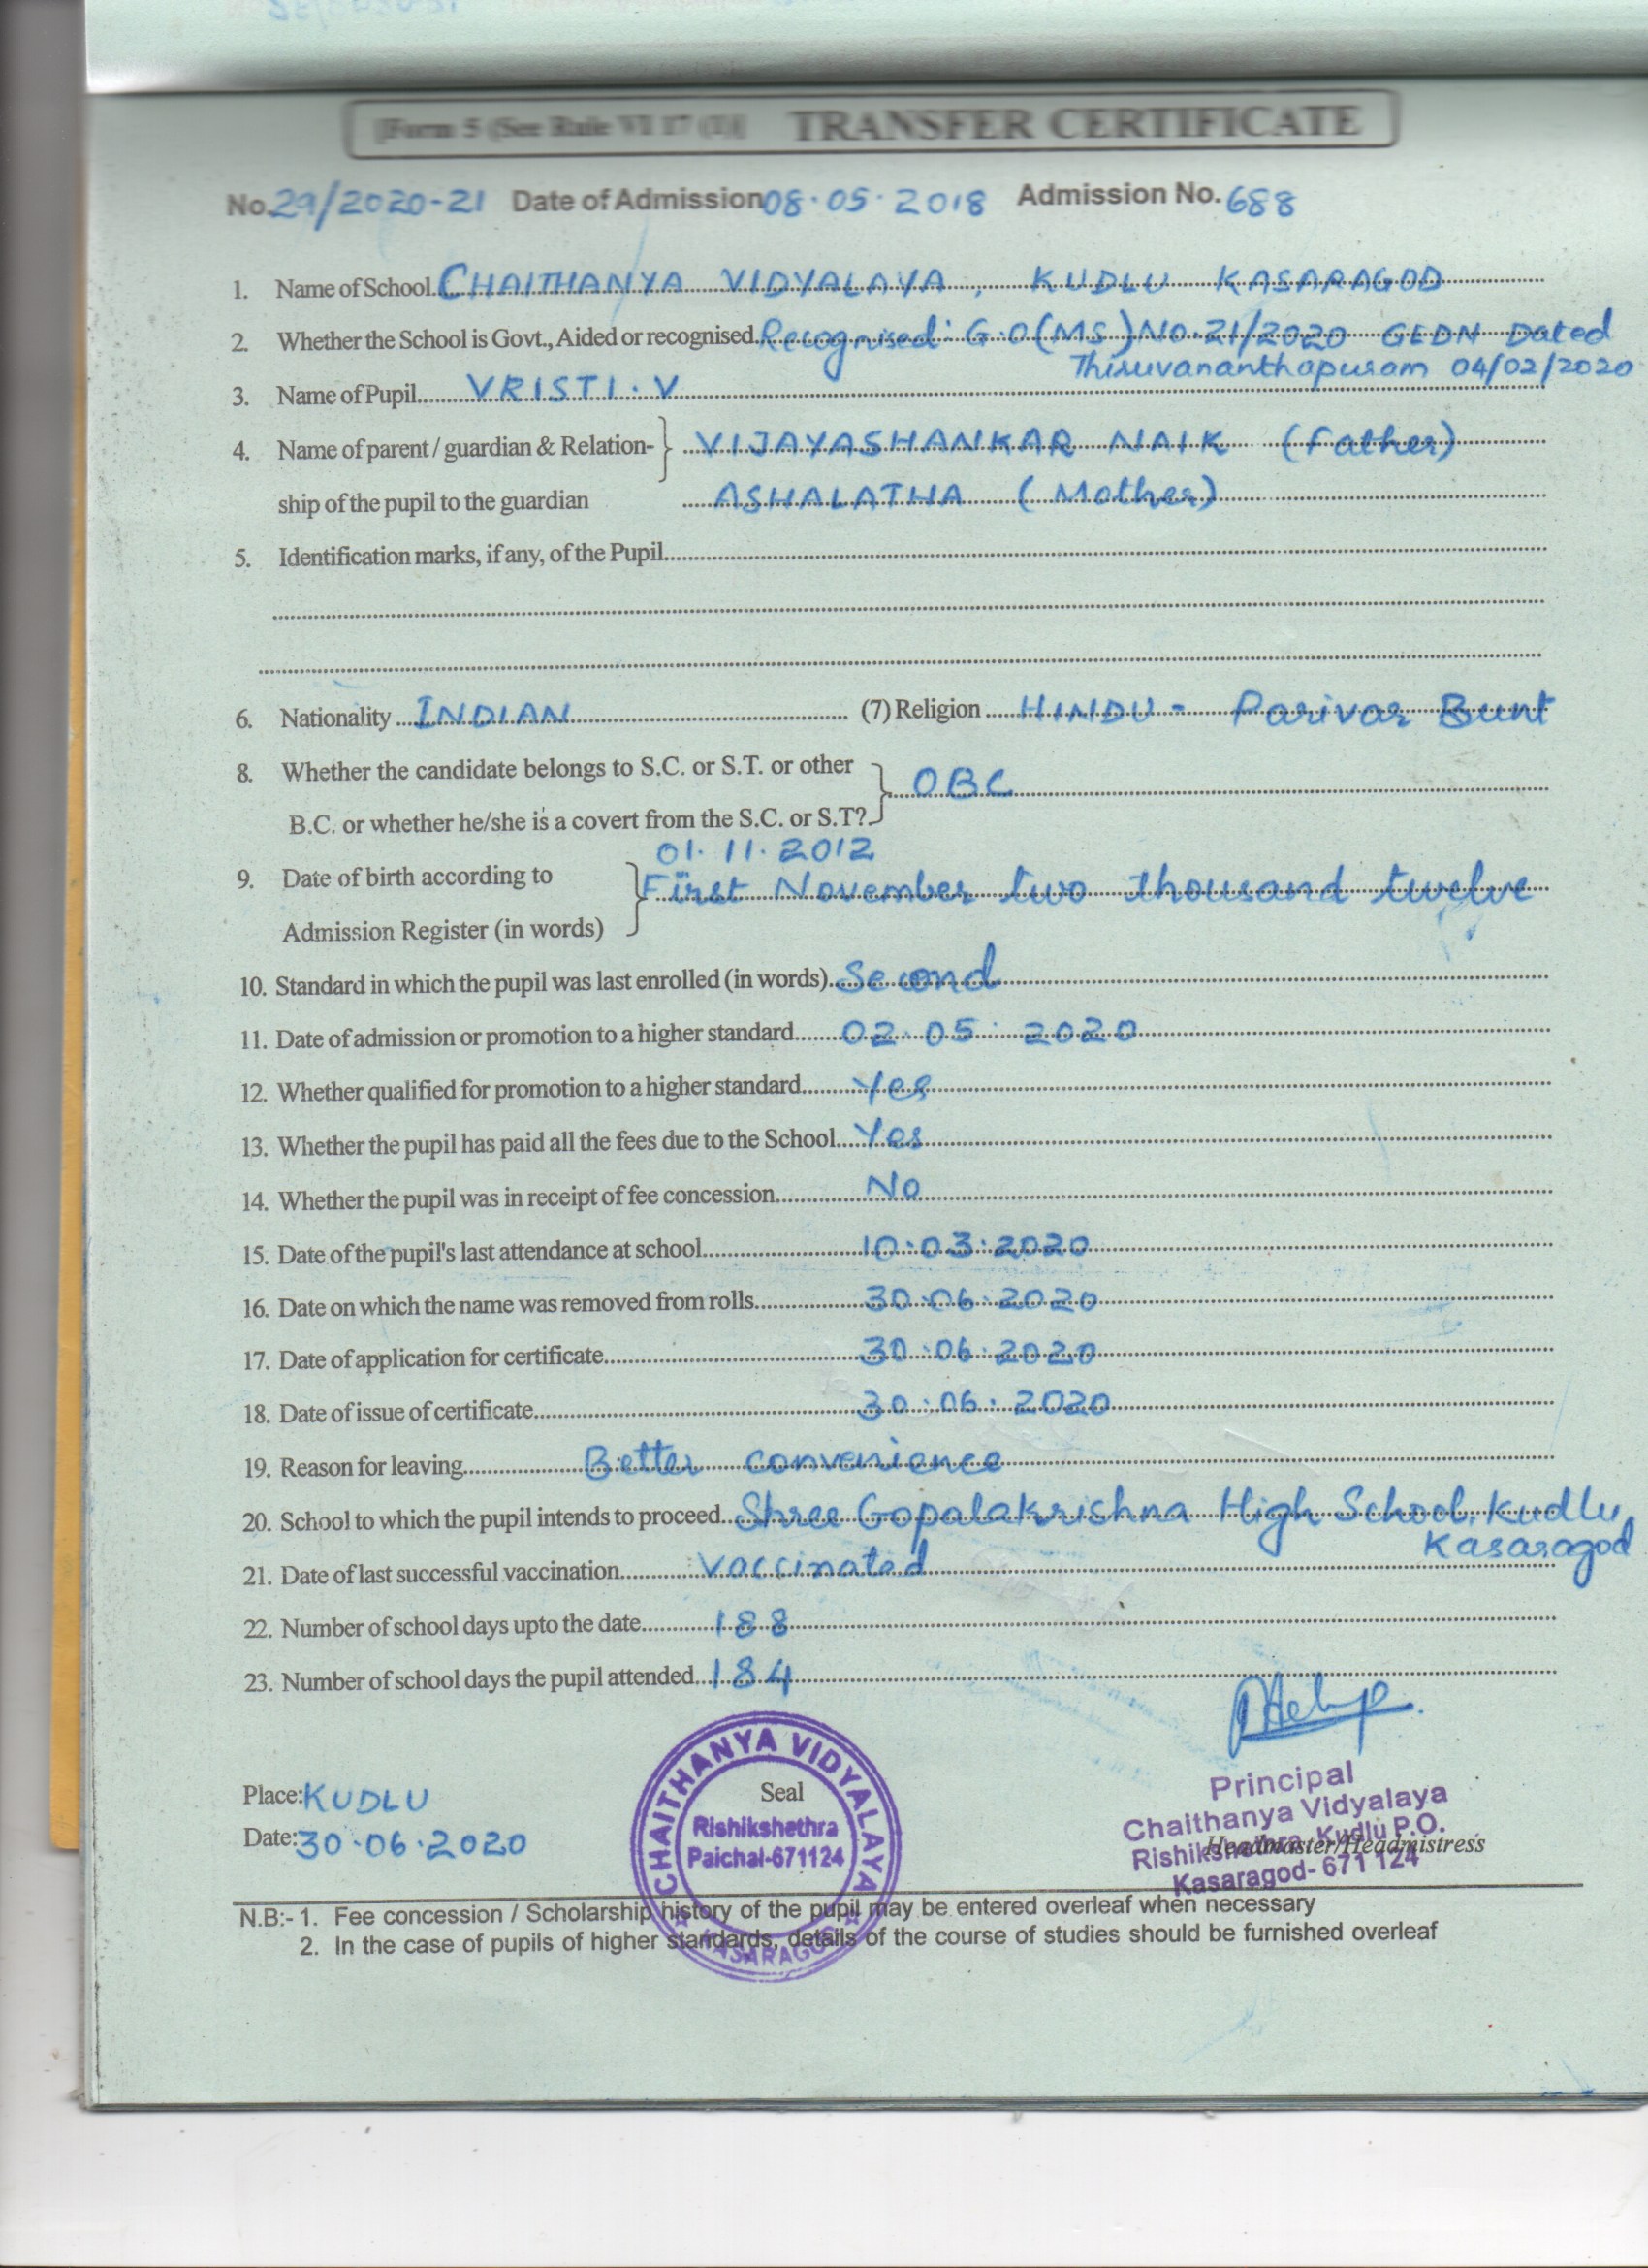 [Form 5 (See Rule VI 17 (1)] TRANSFER CERTIFICATE
No. 29/2020-21 Date of Admission 08.05.2018 Admission No. 688
1. Name of School. CHAITHANYA VIDYALAYA, KUDLU KASARAGOD
2. Whether the School is Govt., Aided or recognised. Recognised: G.O(MS)NO.21/2020 GEDN Dated
Thiruvananthapuram 04/02/2020
3. Name of Pupil VRISTI.V
4. Name of parent / guardian & Relation- VIJAYASHANKAR NAIK (Father)
ship of the pupil to the guardian ASHALATHA (Mother)
5. Identification marks, if any, of the Pupil
6. Nationality INDIAN (7) Religion HINDU - Parivar Bunt
8. Whether the candidate belongs to S.C. or S.T. or other OBC
B.C. or whether he/she is a covert from the S.C. or S.T?
01.11.2012
9. Date of birth according to First November two thousand twelve
Admission Register (in words)
10. Standard in which the pupil was last enrolled (in words) Second
11. Date of admission or promotion to a higher standard 02.05.2020
12. Whether qualified for promotion to a higher standard Yes
13. Whether the pupil has paid all the fees due to the School Yes
14. Whether the pupil was in receipt of fee concession No
15. Date of the pupil's last attendance at school 10.03.2020
16. Date on which the name was removed from rolls 30.06.2020
17. Date of application for certificate 30.06.2020
18. Date of issue of certificate 30.06.2020
19. Reason for leaving Better convenience
20. School to which the pupil intends to proceed Shree Gopalakrishna High School, Kudlu,
Kasaragod
21. Date of last successful vaccination Vaccinated
22. Number of school days upto the date 188
23. Number of school days the pupil attended 184
Place: KUDLU
Date: 30.06.2020
Seal
CHAITHANYA VIDYALAYA
Rishikshethra
Paichal-671124
KASARAGOD
Principal
Chaithanya Vidyalaya
Rishikshethra, Kudlu P.O.
Kasaragod- 671 124
Headmaster/Headmistress
N.B:- 1. Fee concession / Scholarship history of the pupil may be entered overleaf when necessary
2. In the case of pupils of higher standards, details of the course of studies should be furnished overleaf